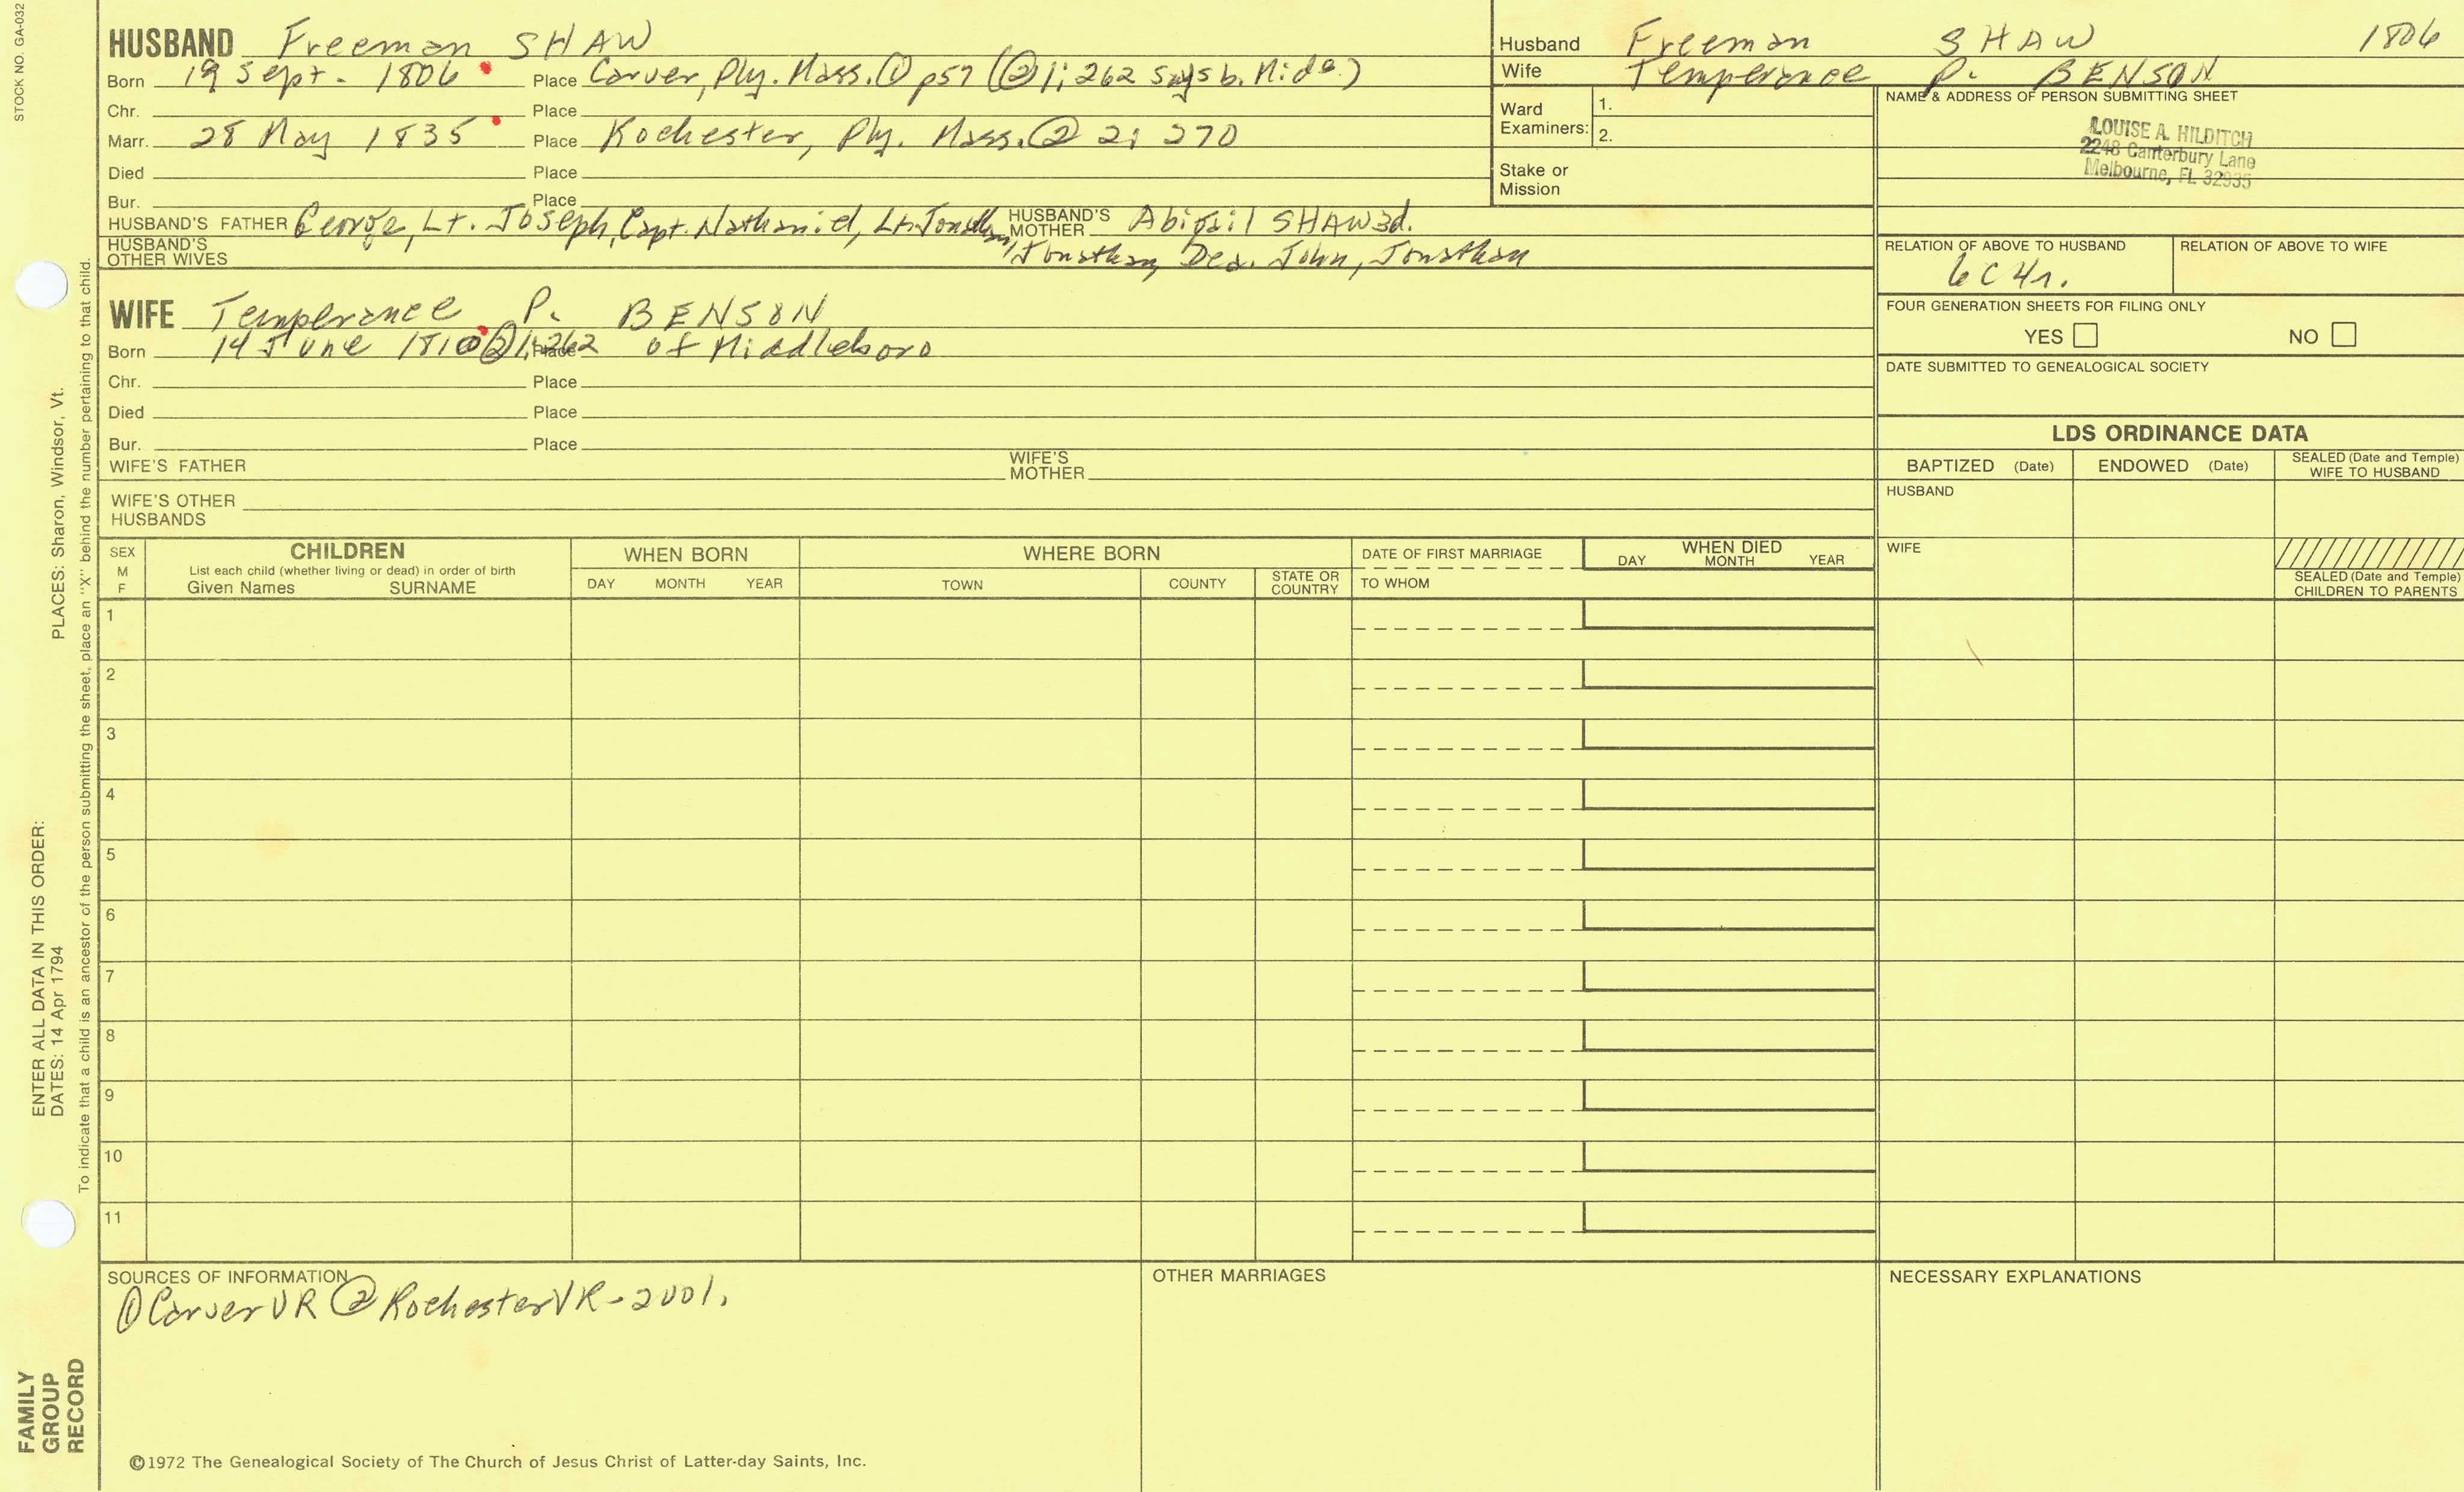 STOCK NO. GA-032
PLACES: Sharon, Windsor, Vt.
ENTER ALL DATA IN THIS ORDER:
DATES: 14 Apr 1794
To indicate that a child is an ancestor of the person submitting the sheet, place an "X" behind the number pertaining to that child.
FAMILY
GROUP
RECORD
HUSBAND Freeman SHAW
Born 19 Sept. 1806 Place Carver, Ply. Mass. ① p57 (② 1; 262 says b. Mido.)
Chr. Place
Marr. 28 May 1835 Place Rochester, Ply. Mass. ② 2; 270
Died Place
Bur. Place
HUSBAND'S FATHER George, Lt. Joseph, Capt. Nathaniel, Lt. Jonathan, HUSBAND'S MOTHER Abigail SHAW 3d.
HUSBAND'S OTHER WIVES Jonathan, Dea. John, Jonathan
WIFE Temperance P. BENSON
Born 14 June 1810 ② 1; 262 Place of Middleboro
Chr. Place
Died Place
Bur. Place
WIFE'S FATHER WIFE'S MOTHER
WIFE'S OTHER HUSBANDS
Husband Freeman SHAW 1806
Wife Temperance P. BENSON
Ward Examiners: 1.
2.
Stake or Mission
NAME & ADDRESS OF PERSON SUBMITTING SHEET
LOUISE A. HILDITCH
2248 Canterbury Lane
Melbourne, FL 32935
RELATION OF ABOVE TO HUSBAND RELATION OF ABOVE TO WIFE
6C4r.
FOUR GENERATION SHEETS FOR FILING ONLY
YES NO
DATE SUBMITTED TO GENEALOGICAL SOCIETY
LDS ORDINANCE DATA
BAPTIZED (Date) ENDOWED (Date) SEALED (Date and Temple) WIFE TO HUSBAND
HUSBAND
WIFE
SEALED (Date and Temple) CHILDREN TO PARENTS
SEX M F
CHILDREN
List each child (whether living or dead) in order of birth
Given Names SURNAME
WHEN BORN
DAY MONTH YEAR
WHERE BORN
TOWN COUNTY STATE OR COUNTRY
DATE OF FIRST MARRIAGE
TO WHOM
WHEN DIED
DAY MONTH YEAR
1
2
3
4
5
6
7
8
9
10
11
SOURCES OF INFORMATION
① Carver VR ② Rochester VR - 2001.
OTHER MARRIAGES
NECESSARY EXPLANATIONS
©1972 The Genealogical Society of The Church of Jesus Christ of Latter-day Saints, Inc.